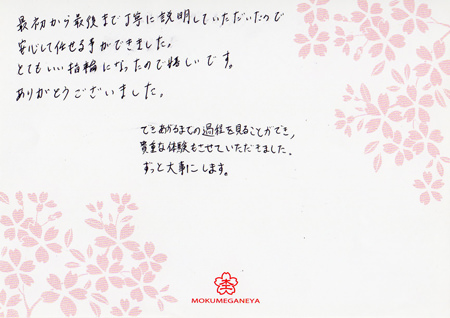 最初から最後まで丁寧に説明していただいたので
安心して任せる事ができました。
とてもいい指輪になったので嬉しいです。
ありがとうございました。
できあがるまでの過程を見ることができ、
貴重な体験もさせていただきました。
ずっと大事にします。
MOKUMEGANEYA